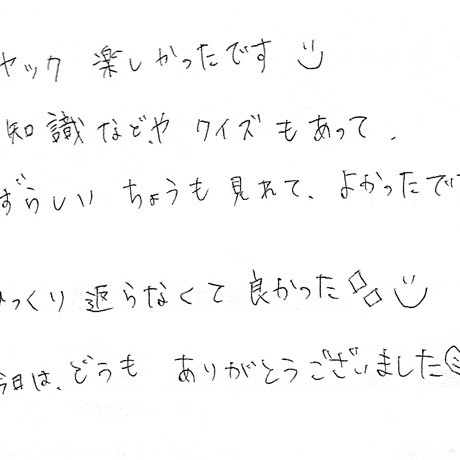 ヤック 楽しかったです
知識などや クイズもあって、
ずらしい ちょうも見れて、よかったでで
っくり返らなくて良かった
今日は、どうも ありがとうございました